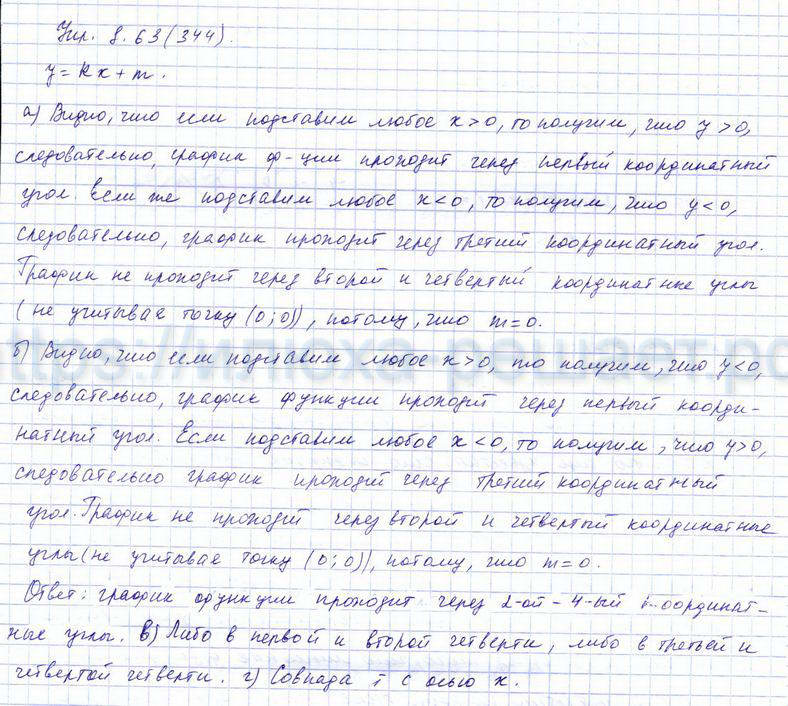 Упр. 8.63(344).
y = kx + m.
а) Видно, что если подставим любое x > 0, то получим, что y > 0,
следовательно, график ф-ции проходит через первый координатный
угол. Если же подставим любое x < 0, то получим, что y < 0,
следовательно, график проходит через третий координатный угол.
График не проходит через второй и четвертый координатные углы
(не учитывая точку (0;0)), потому, что m = 0.
б) Видно, что если подставим любое x > 0, то получим, что y < 0,
следовательно, график функции проходит через первый коорди-
натный угол. Если подставим любое x < 0, то получим, что y > 0,
следовательно график проходит через третий координатный
угол. График не проходит через второй и четвертый координатные
углы (не учитывая точку (0;0)), потому, что m = 0.
Ответ: график функции проходит через 2-ой - 4-ый координат-
ные углы. в) Либо в первой и второй четверти, либо в третьей и
четвертой четверти. г) Совпадает с осью x.